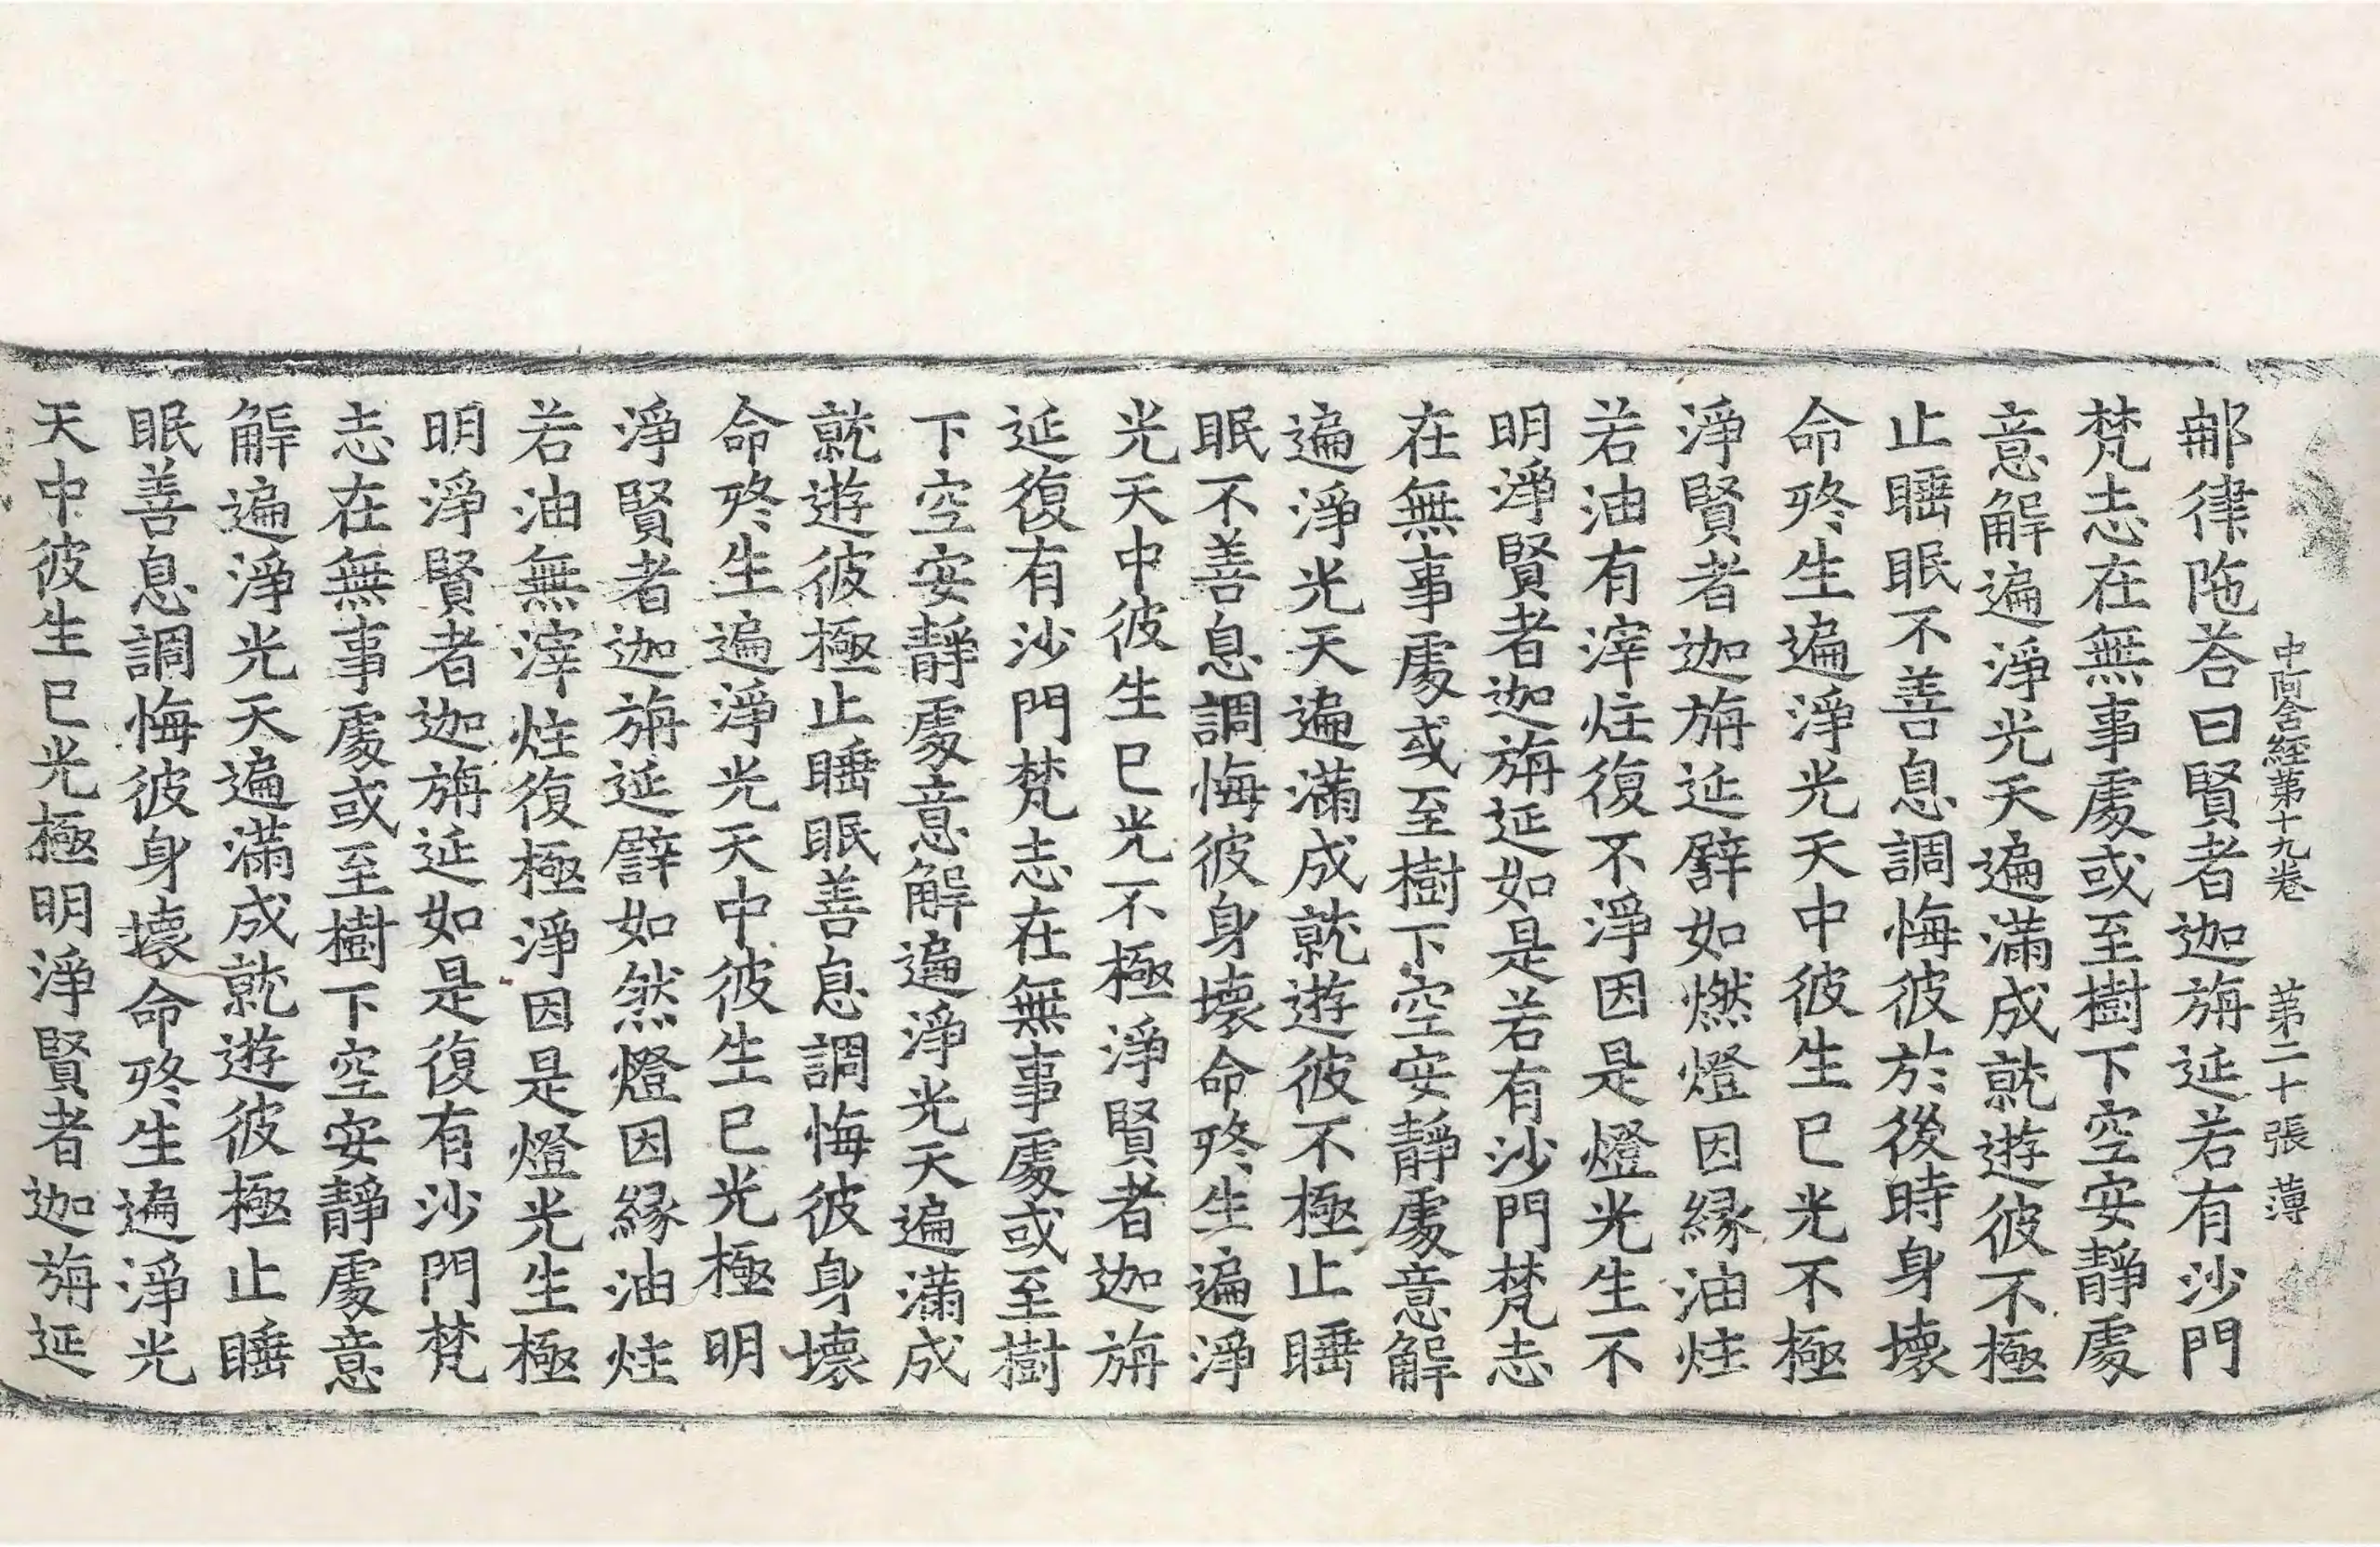 中阿含經第十九卷　第二十張　薄
䣯律陁荅曰賢者迦旃延若有沙門
梵志在無事處或至樹下空安靜處
意解遍淨光天遍滿成就遊彼不極
止睡眠不善息調悔彼於後時身壞
命終生遍淨光天中彼生已光不極
淨賢者迦旃延譬如燃燈因緣油炷
若油有滓炷復不淨因是燈光生不
明淨賢者迦旃延如是若有沙門梵志
在無事處或至樹下空安靜處意解
遍淨光天遍滿成就遊彼不極止睡
眠不善息調悔彼身壞命終生遍淨
光天中彼生已光不極淨賢者迦旃
延復有沙門梵志在無事處或至樹
下空安靜處意解遍淨光天遍滿成
就遊彼極止睡眠善息調悔彼身壞
命終生遍淨光天中彼生已光極明
淨賢者迦旃延譬如然燈因緣油炷
若油無滓炷復極淨因是燈光生極
明淨賢者迦旃延如是復有沙門梵
志在無事處或至樹下空安靜處意
解遍淨光天遍滿成就遊彼極止睡
眠善息調悔彼身壞命終生遍淨光
天中彼生已光極明淨賢者迦旃延